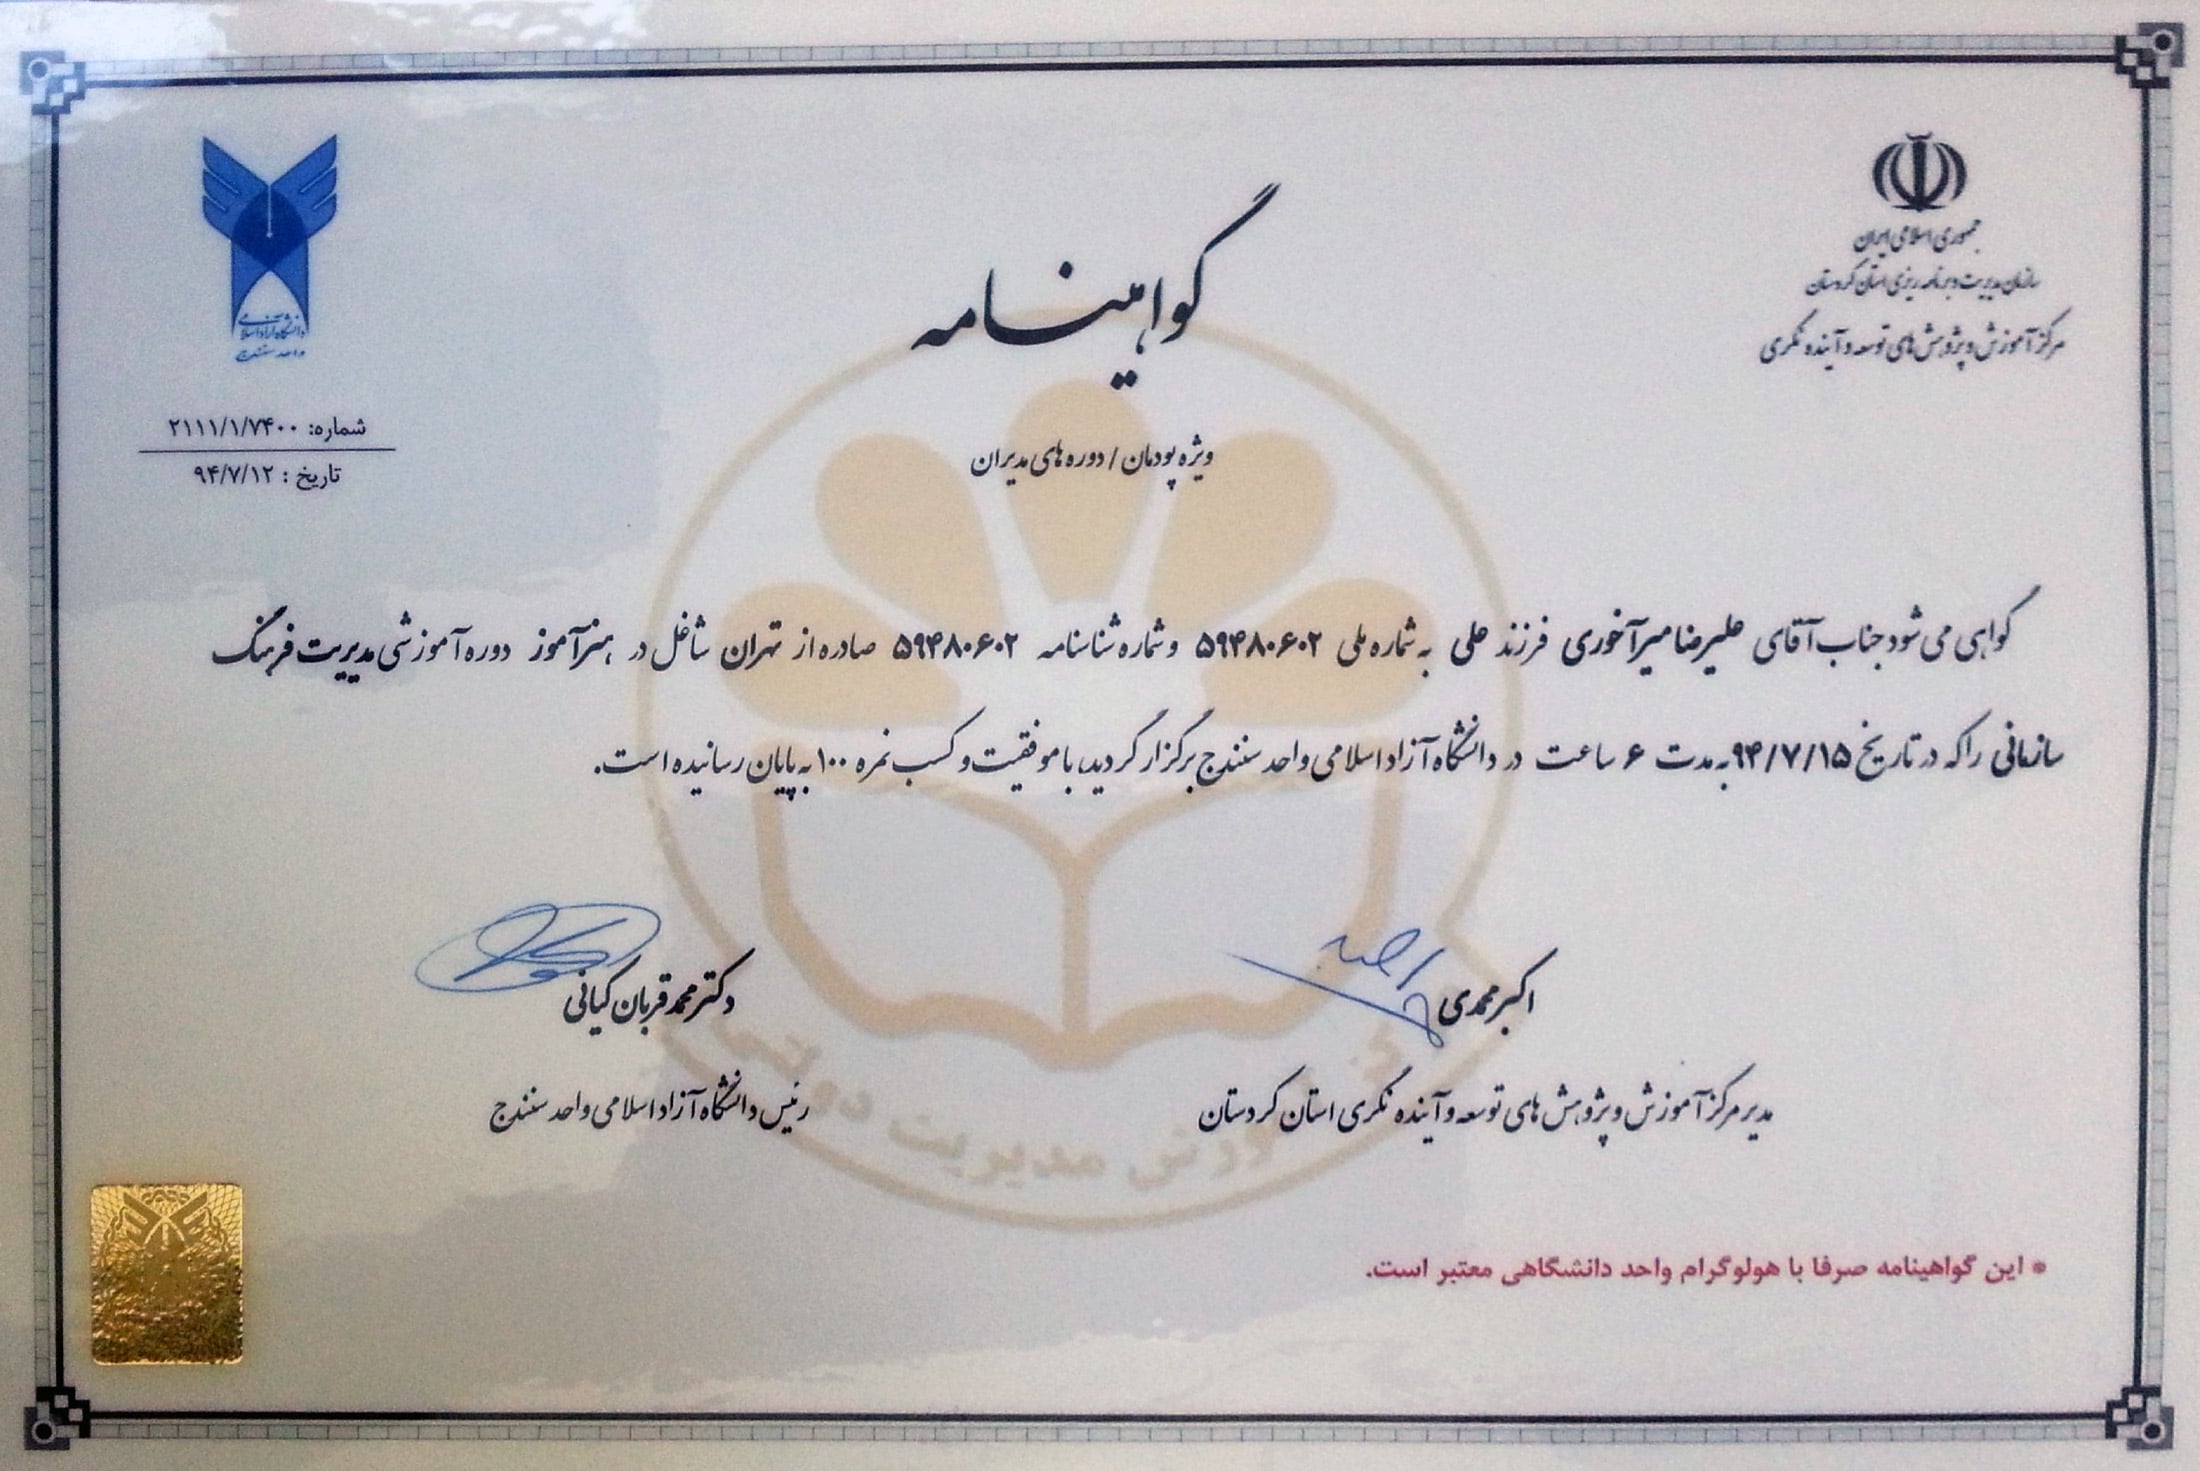 جمهوری اسلامی ایران
سازمان مدیریت و برنامه ریزی استان کردستان
مرکز آموزش و پژوهش های توسعه و آینده نگری
دانشگاه آزاد اسلامی
واحد سنندج
گواهینامه
شماره: ۲۱۱۱/۱/۷۴۰۰
تاریخ : ۹۴/۷/۱۲
ویژه پودمان / دوره های مدیران
گواهی می شود جناب آقای علیرضا میرآخوری فرزند علی به شماره ملی ۵۹۴۸۰۶۰۲ و شماره شناسنامه ۵۹۴۸۰۶۰۲ صادره از تهران شاغل در هنرآموز دوره آموزشی مدیریت فرهنگ
سازمانی را که در تاریخ ۹۴/۷/۱۵ به مدت ۶ ساعت در دانشگاه آزاد اسلامی واحد سنندج برگزار گردید، با موفقیت و کسب نمره ۱۰۰ به پایان رسانیده است.
اکبر محمدی
مدیر مرکز آموزش و پژوهش های توسعه و آینده نگری استان کردستان
دکتر محمد قربان کیانی
رئیس دانشگاه آزاد اسلامی واحد سنندج
مدیریت
* این گواهینامه صرفا با هولوگرام واحد دانشگاهی معتبر است.